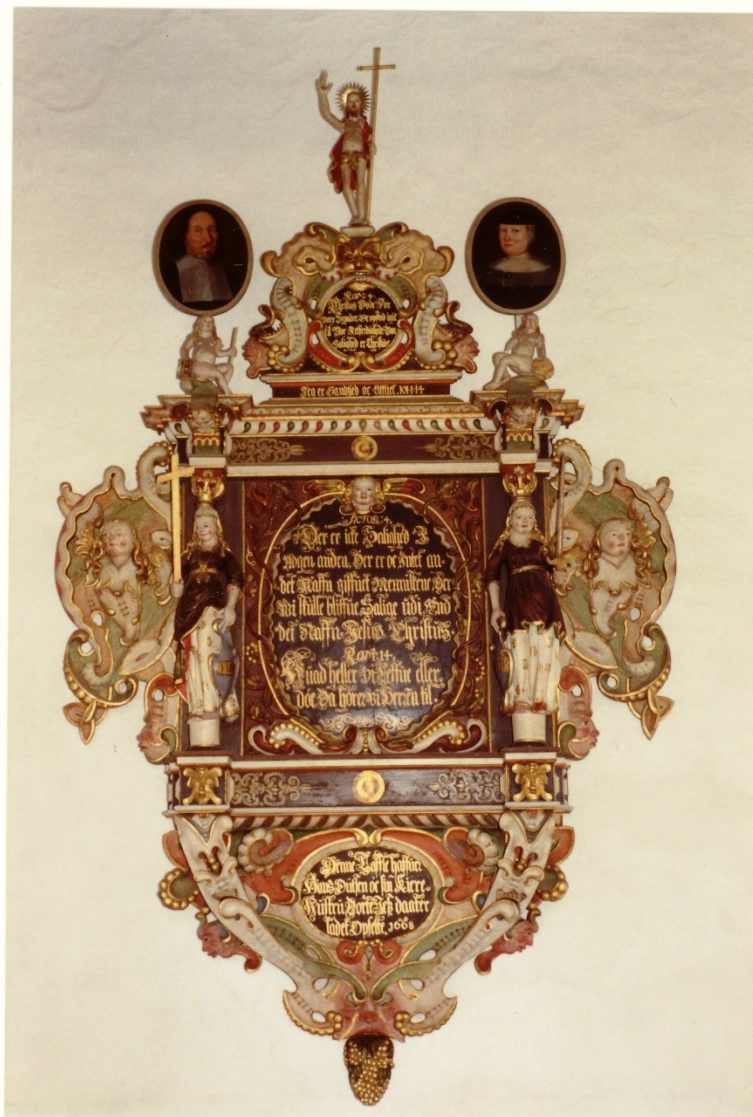 Christus Døde For
vore Synder Er opstod igen
til Vor Retferdighed. Vor
Salighed er Christus
Jeg er Sandhed oc Liffuet. IOH. 14
ACTOR: 4.
Der er icke Salighed I
Nogen anden, Der er oc Intet an-
det Naffn giffuet Menniskene Der
Vi skulle bliffue Salige udi End
det Naffn Jesus Christus.
Rom: 14
Huad heller Vi Leffue eller
döe Da hörer Vi Herren til.
Denne Taffle haffuer
Hans Oufsen oc sin Kiere
Hustru daatter
ladet Opsette, 1668